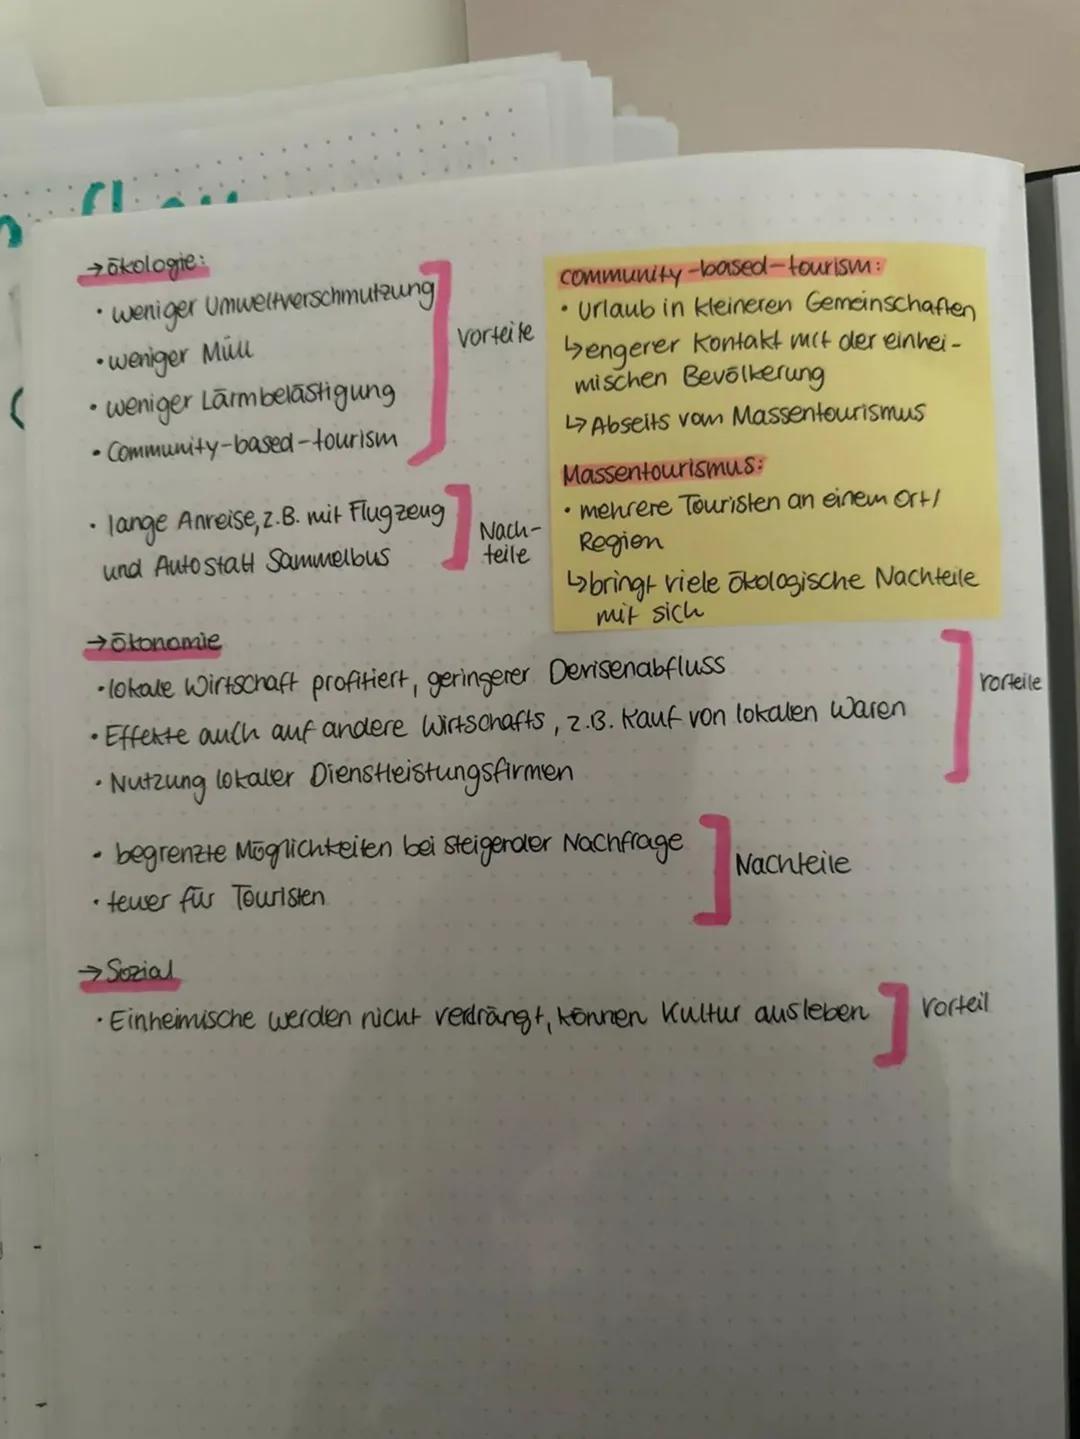 →ökologie:
• weniger Umweltverschmutzung
• weniger Müll
• weniger Lärmbelästigung
• Community-based-tourism
Vorteile
• lange Anreise, z.B. mit Flugzeug
und Auto statt Sammelbus
Nach-
teile
community-based-tourism:
• Urlaub in kleineren Gemeinschaften
↳engerer Kontakt mit der einhei-
mischen Bevölkerung
↳Abseits vom Massentourismus
Massentourismus:
• mehrere Touristen an einem Ort/
Region
↳bringt viele ökologische Nachteile
mit sich
→ökonomie
• lokale Wirtschaft profitiert, geringerer Devisenabfluss
• Effekte auch auf andere Wirtschafts, z.B. Kauf von lokalen Waren
• Nutzung lokaler Dienstleistungsfirmen
Vorteile
• begrenzte Möglichkeiten bei steigender Nachfrage
• teuer für Touristen
Nachteile
→Sozial
• Einheimische werden nicht verdrängt, können Kultur ausleben
Vorteil